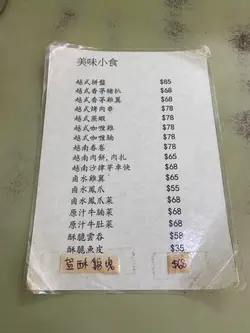 美味小食
越式拼盤 $85
越式香茅豬扒 $68
越式香茅雞翼 $68
越式烤肉串 $78
越式蒸蝦 $78
越式咖喱雞 $78
越式咖喱腩 $78
越南春卷 $78
越南肉餅,肉扎 $65
越南沙律芽車快 $68
鹵水雞翼 $65
鹵水鳳爪 $55
鹵水鳳爪菜 $68
原汁牛腩菜 $68
原汁牛肚菜 $68
酥脆雲吞 $58
酥脆魚皮 $35